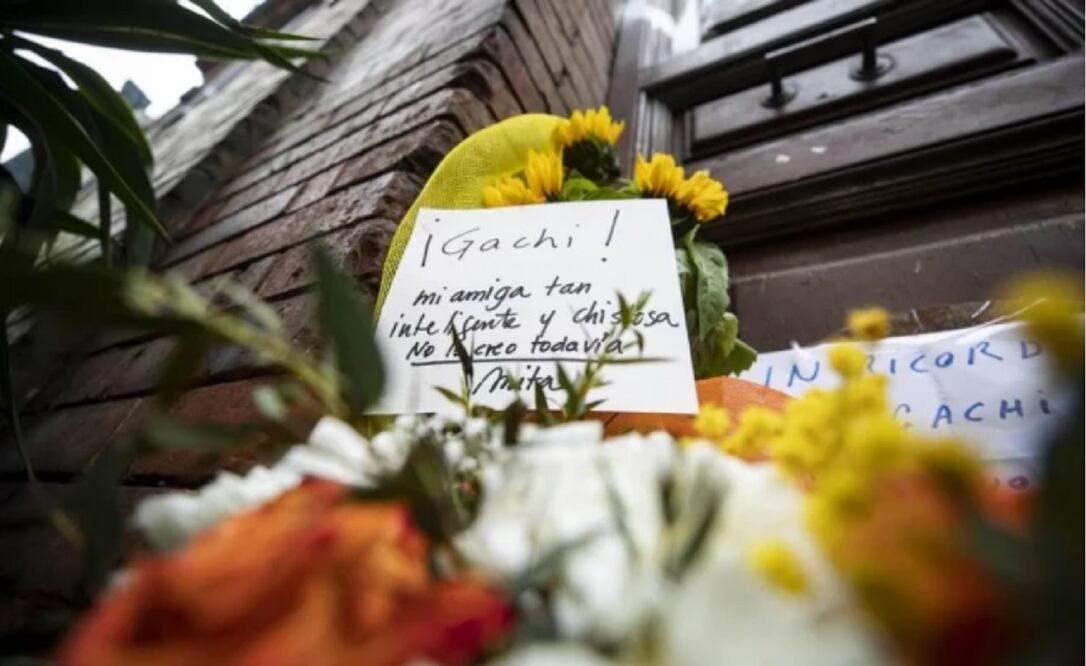 ¡Gachi!
mi amiga tan
inteligente y chistosa
No lo creo todavía
Anita
IN RICORD
GACHI